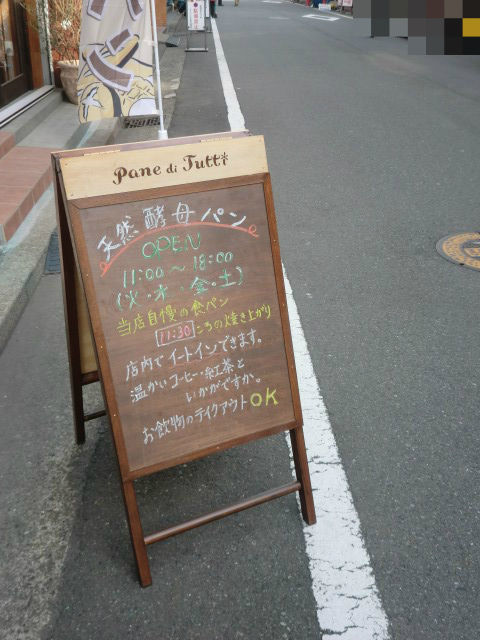 Pane di Tutti
天然酵母パン
OPEN
11:00〜18:00
(火・木・金・土)
当店自慢の食パン
11:30ころの焼き上がり
店内でイートインできます。
温かいコーヒー・紅茶と
いかがですか。
お飲物のテイクアウトOK